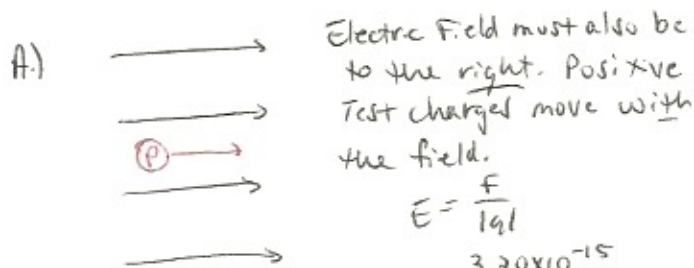 A.)
Electrc Field must also be
to the right. Positive
Test charges move with
the field.
P
E = F
|q|
3.20x10^-15